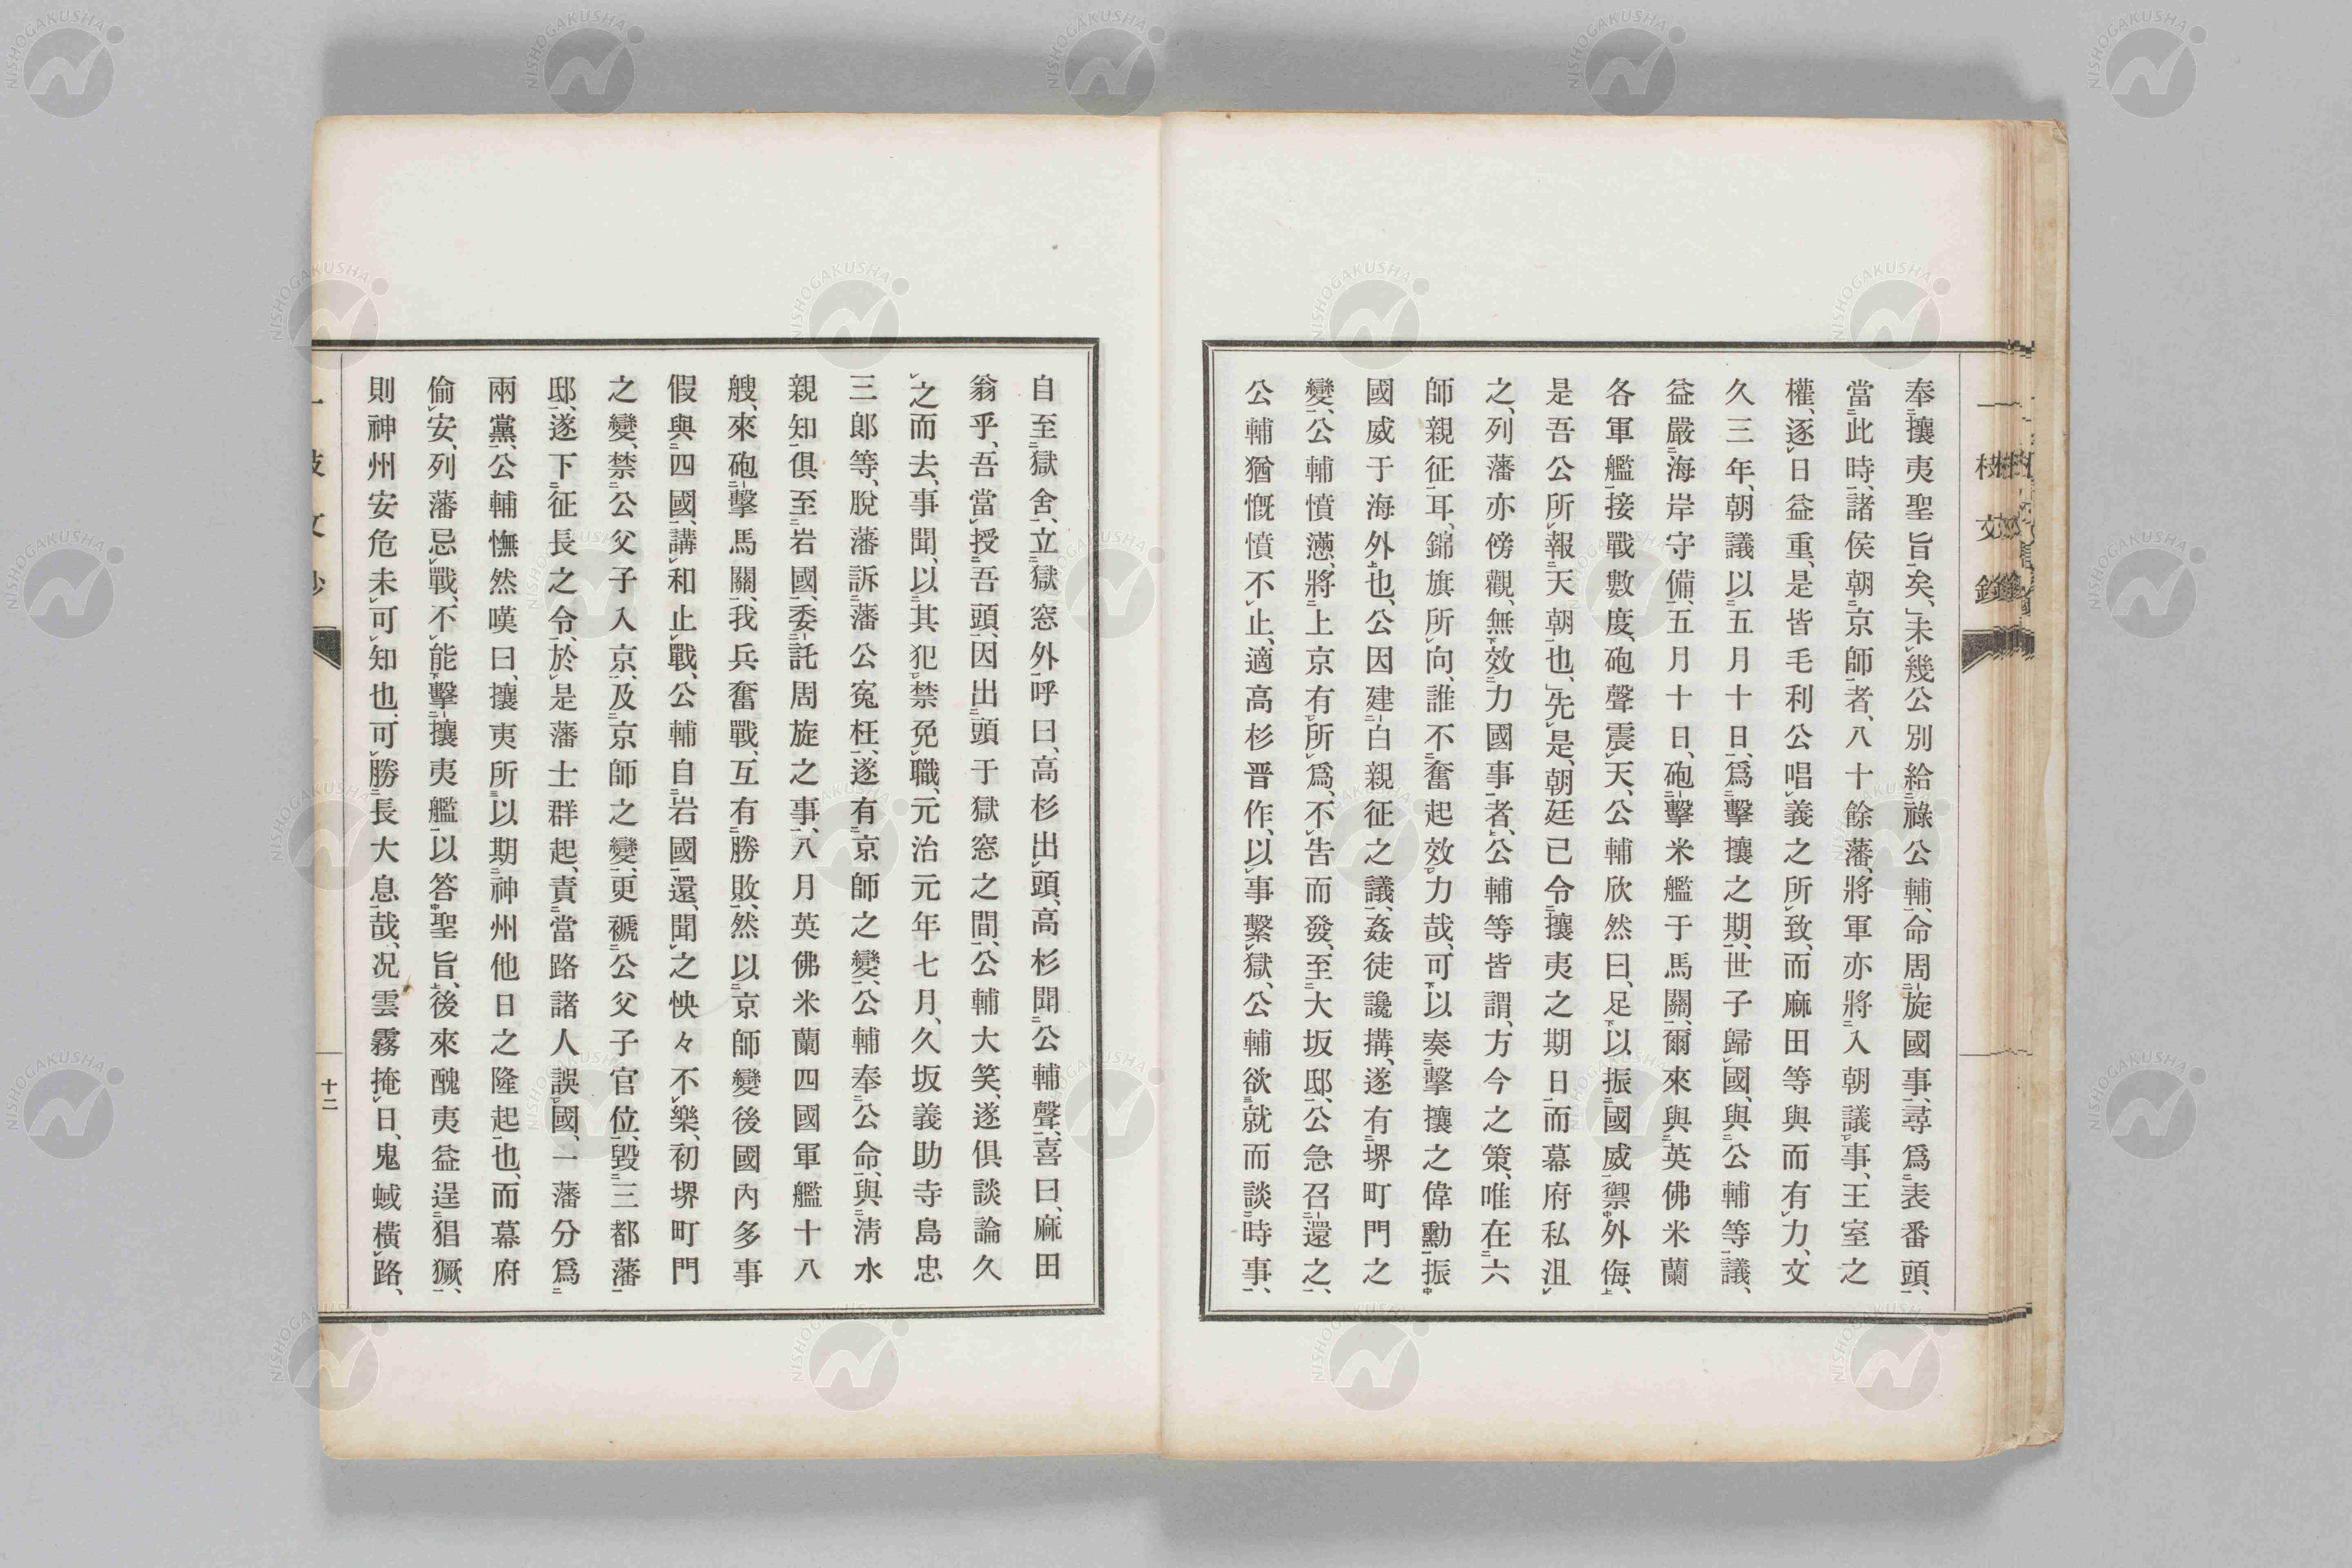 奉攘夷聖旨矣、」未幾公別給祿公輔、命周旋國事、尋爲表番頭、
當此時、諸侯朝京師者、八十餘藩、將軍亦將入朝議事、王室之
權、逐日益重、是皆毛利公唱義之所致、而麻田等與而有力、文
久三年、朝議以五月十日、爲擊攘之期、世子歸國、與公輔等議、
益嚴海岸守備、五月十日、砲擊米艦于馬關、爾來與英佛米蘭
各軍艦接戰數度、砲聲震天、公輔欣然曰、足以振國威禦外侮、
是吾公所報天朝也、」先是、朝廷已令攘夷之期日、而幕府私沮
之、列藩亦傍觀、無效力國事者、公輔等皆謂、方今之策、唯在六
師親征耳、錦旗所向、誰不奮起效力哉、可以奏擊攘之偉勳、振
國威于海外也、公因建白親征之議、姦徒讒搆、遂有堺町門之
變、公輔憤懣、將上京有所爲、不告而發、至大坂邸、公急召還之、
公輔猶慨憤不止、適高杉晋作、以事繫獄、公輔欲就而談時事、
自至獄舍、立獄窓外呼曰、高杉出頭、高杉聞公輔聲、喜曰、麻田
翁乎、吾當授吾頭、因出頭于獄窓之間、公輔大笑、遂俱談論久
之而去、事聞、以其犯禁免職、元治元年七月、久坂義助寺島忠
三郎等、脫藩訴藩公寃枉、遂有京師之變、公輔奉公命、與淸水
親知俱至岩國、委託周旋之事、八月英佛米蘭四國軍艦十八
艘、來砲擊馬關、我兵奮戰、互有勝敗、然以京師變後國內多事
假與四國、講和止戰、公輔自岩國還、聞之怏々不樂、初堺町門
之變、禁公父子入京、及京師之變、更褫公父子官位、毀三都藩
邸、遂下征長之令、於是藩士群起、責當路諸人誤國、一藩分爲
兩黨、公輔憮然嘆曰、攘夷所以期神州他日之隆起也、而幕府
偷安、列藩忌戰、不能擊攘夷艦以答聖旨、後來醜夷益逞猖獗、
則神州安危未可知也、可勝長大息哉、况雲霧掩日、鬼蜮橫路、
十二